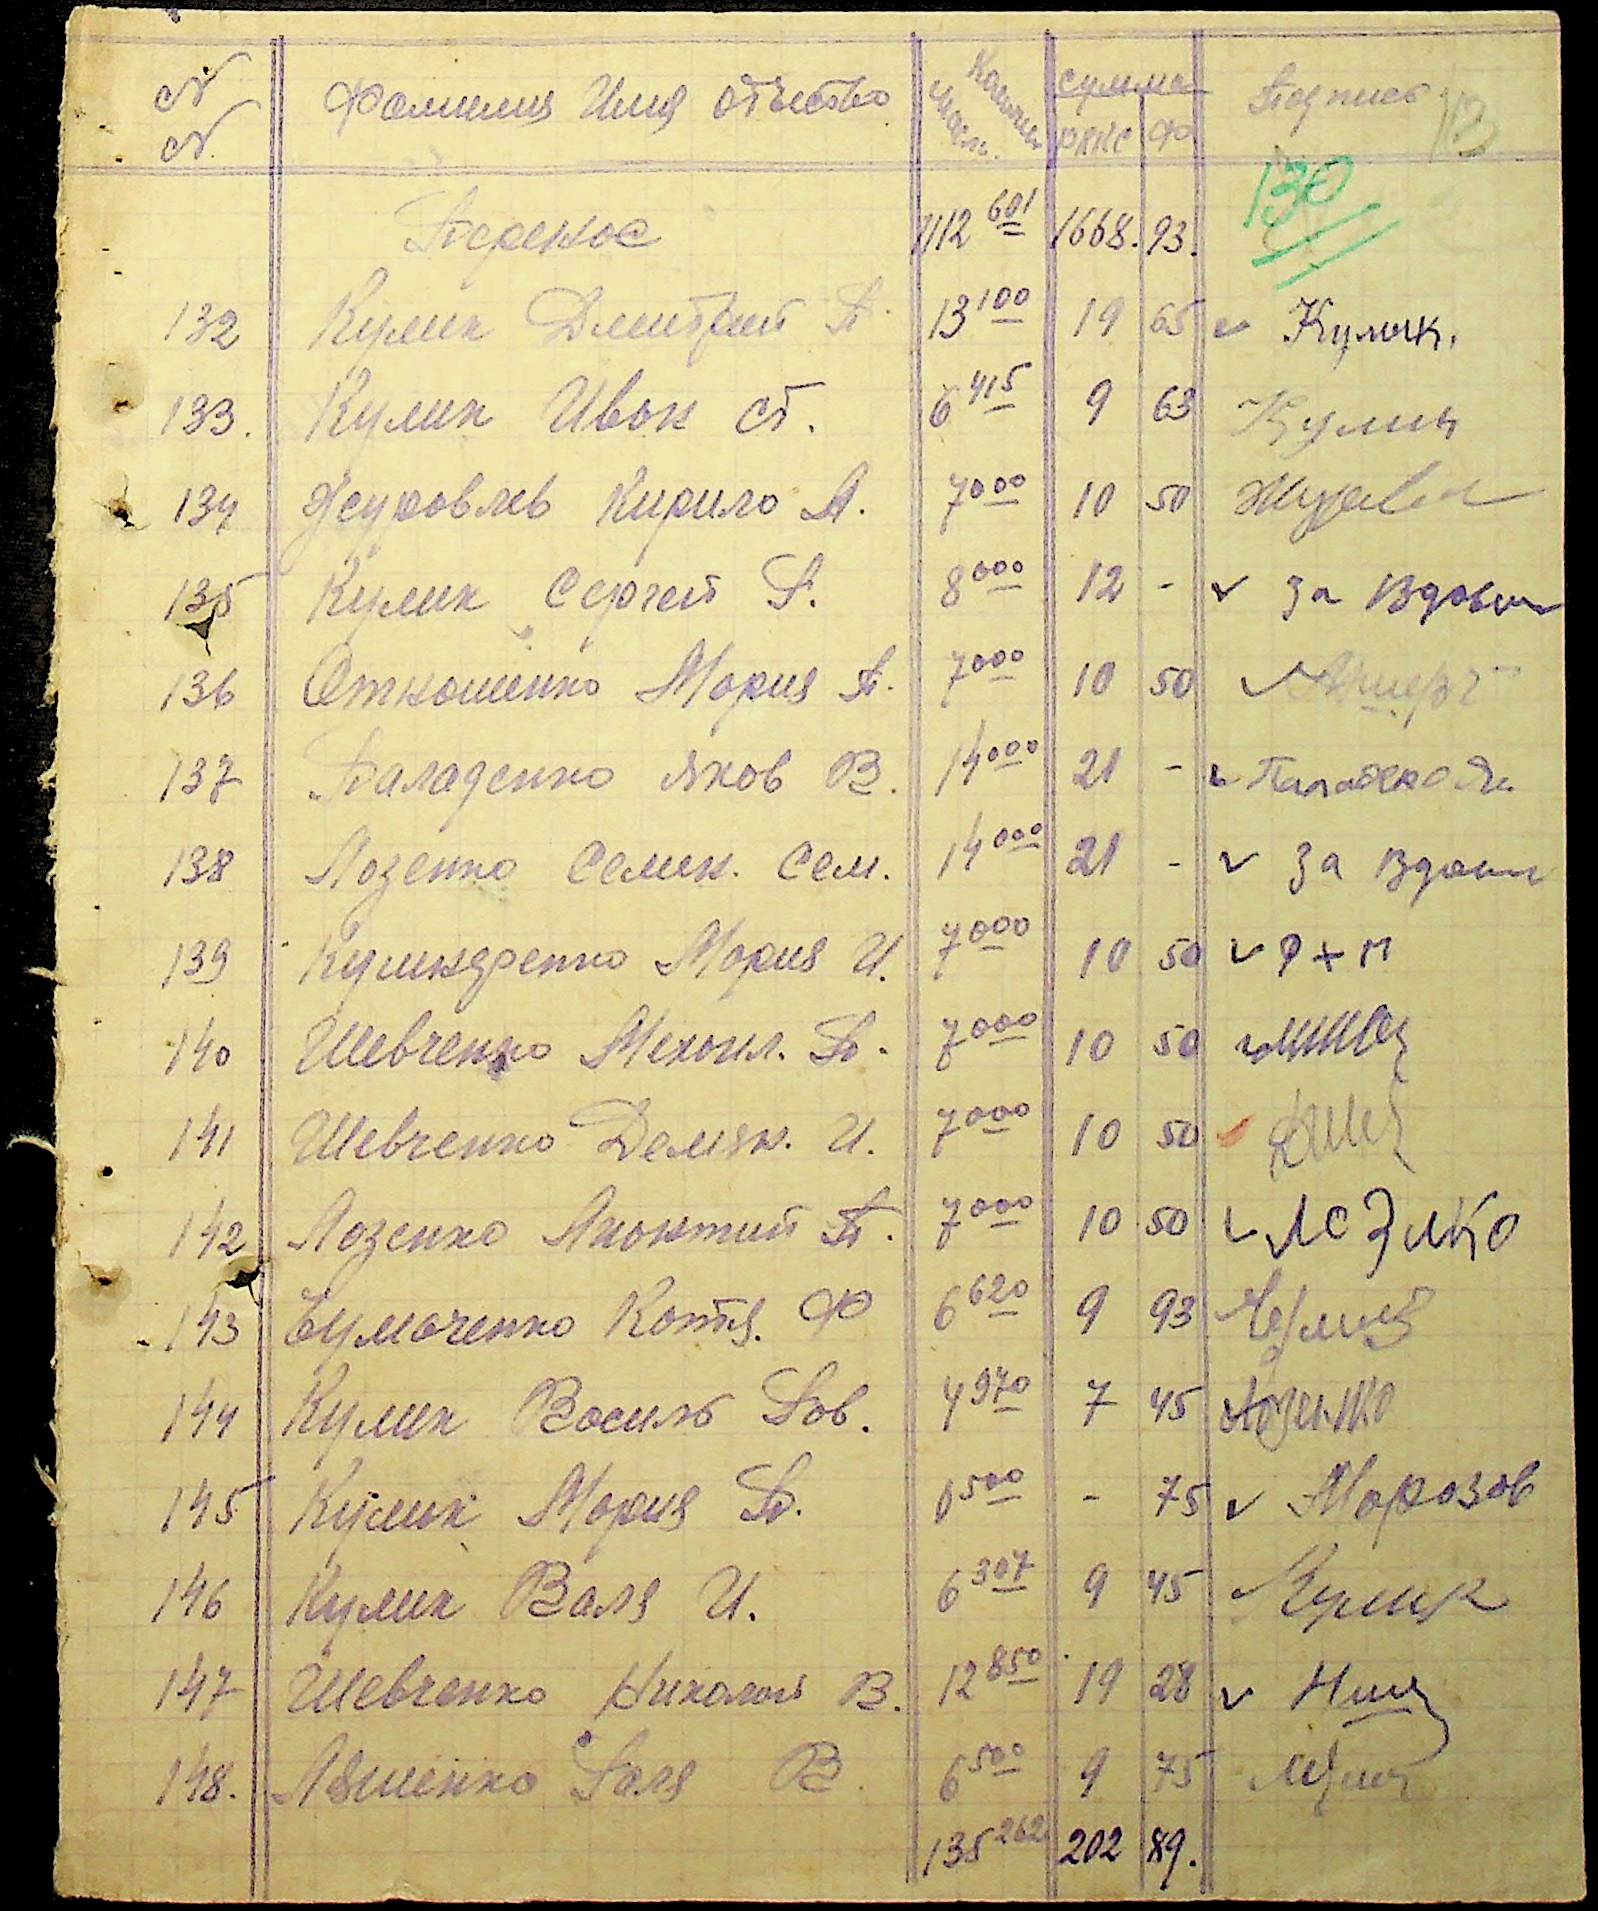 N N Фамилия Имя отчество Колич масл. сумма РККС Ф Подпись
130
Перенос 1112 601 1668. 93.
132 Кулик Дмитрий П. 13 100 19 65 Кулик.
133. Кулик Иван Ст. 6 415 9 63 Кулик
134 Журовлев Кирило А. 7 000 10 50 Журавл
135 Кулик Сергей Г. 8 000 12 - За Вдовин
136 Отношенко Мория П. 7 000 10 50
137 Паладенко Яков В. 14 000 21 -
138 Лозенко Семен. Сем. 14 000 21 - За Вдовин
139 Кулиндренко Мория И. 7 000 10 50 Р + М
140 Шевченко Механл. П. 7 000 10 50
141 Шевченко Демян. И. 7 000 10 50
142 Лозенко П. 7 000 10 50 ЛОЗИКО
143 Чумаченко Котя. Ф 6 620 9 93
144 Кулик Восиль Гов. 4 970 7 45 Лозенко
145 Кулик Мория П. 0 500 - 75 Морозов
146 Кулик Валя И. 6 307 9 45 Кулик
147 Шевченко Николай В. 12 850 19 28
148. Ляшенко Галя В. 6 500 9 75
135 262 202 89.